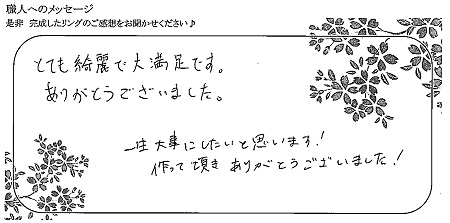 職人へのメッセージ
是非 完成したリングのご感想をお聞かせください♪
とても綺麗で大満足です。
ありがとうございました。
一生大事にしたいと思います!
作って頂き ありがとうございました!